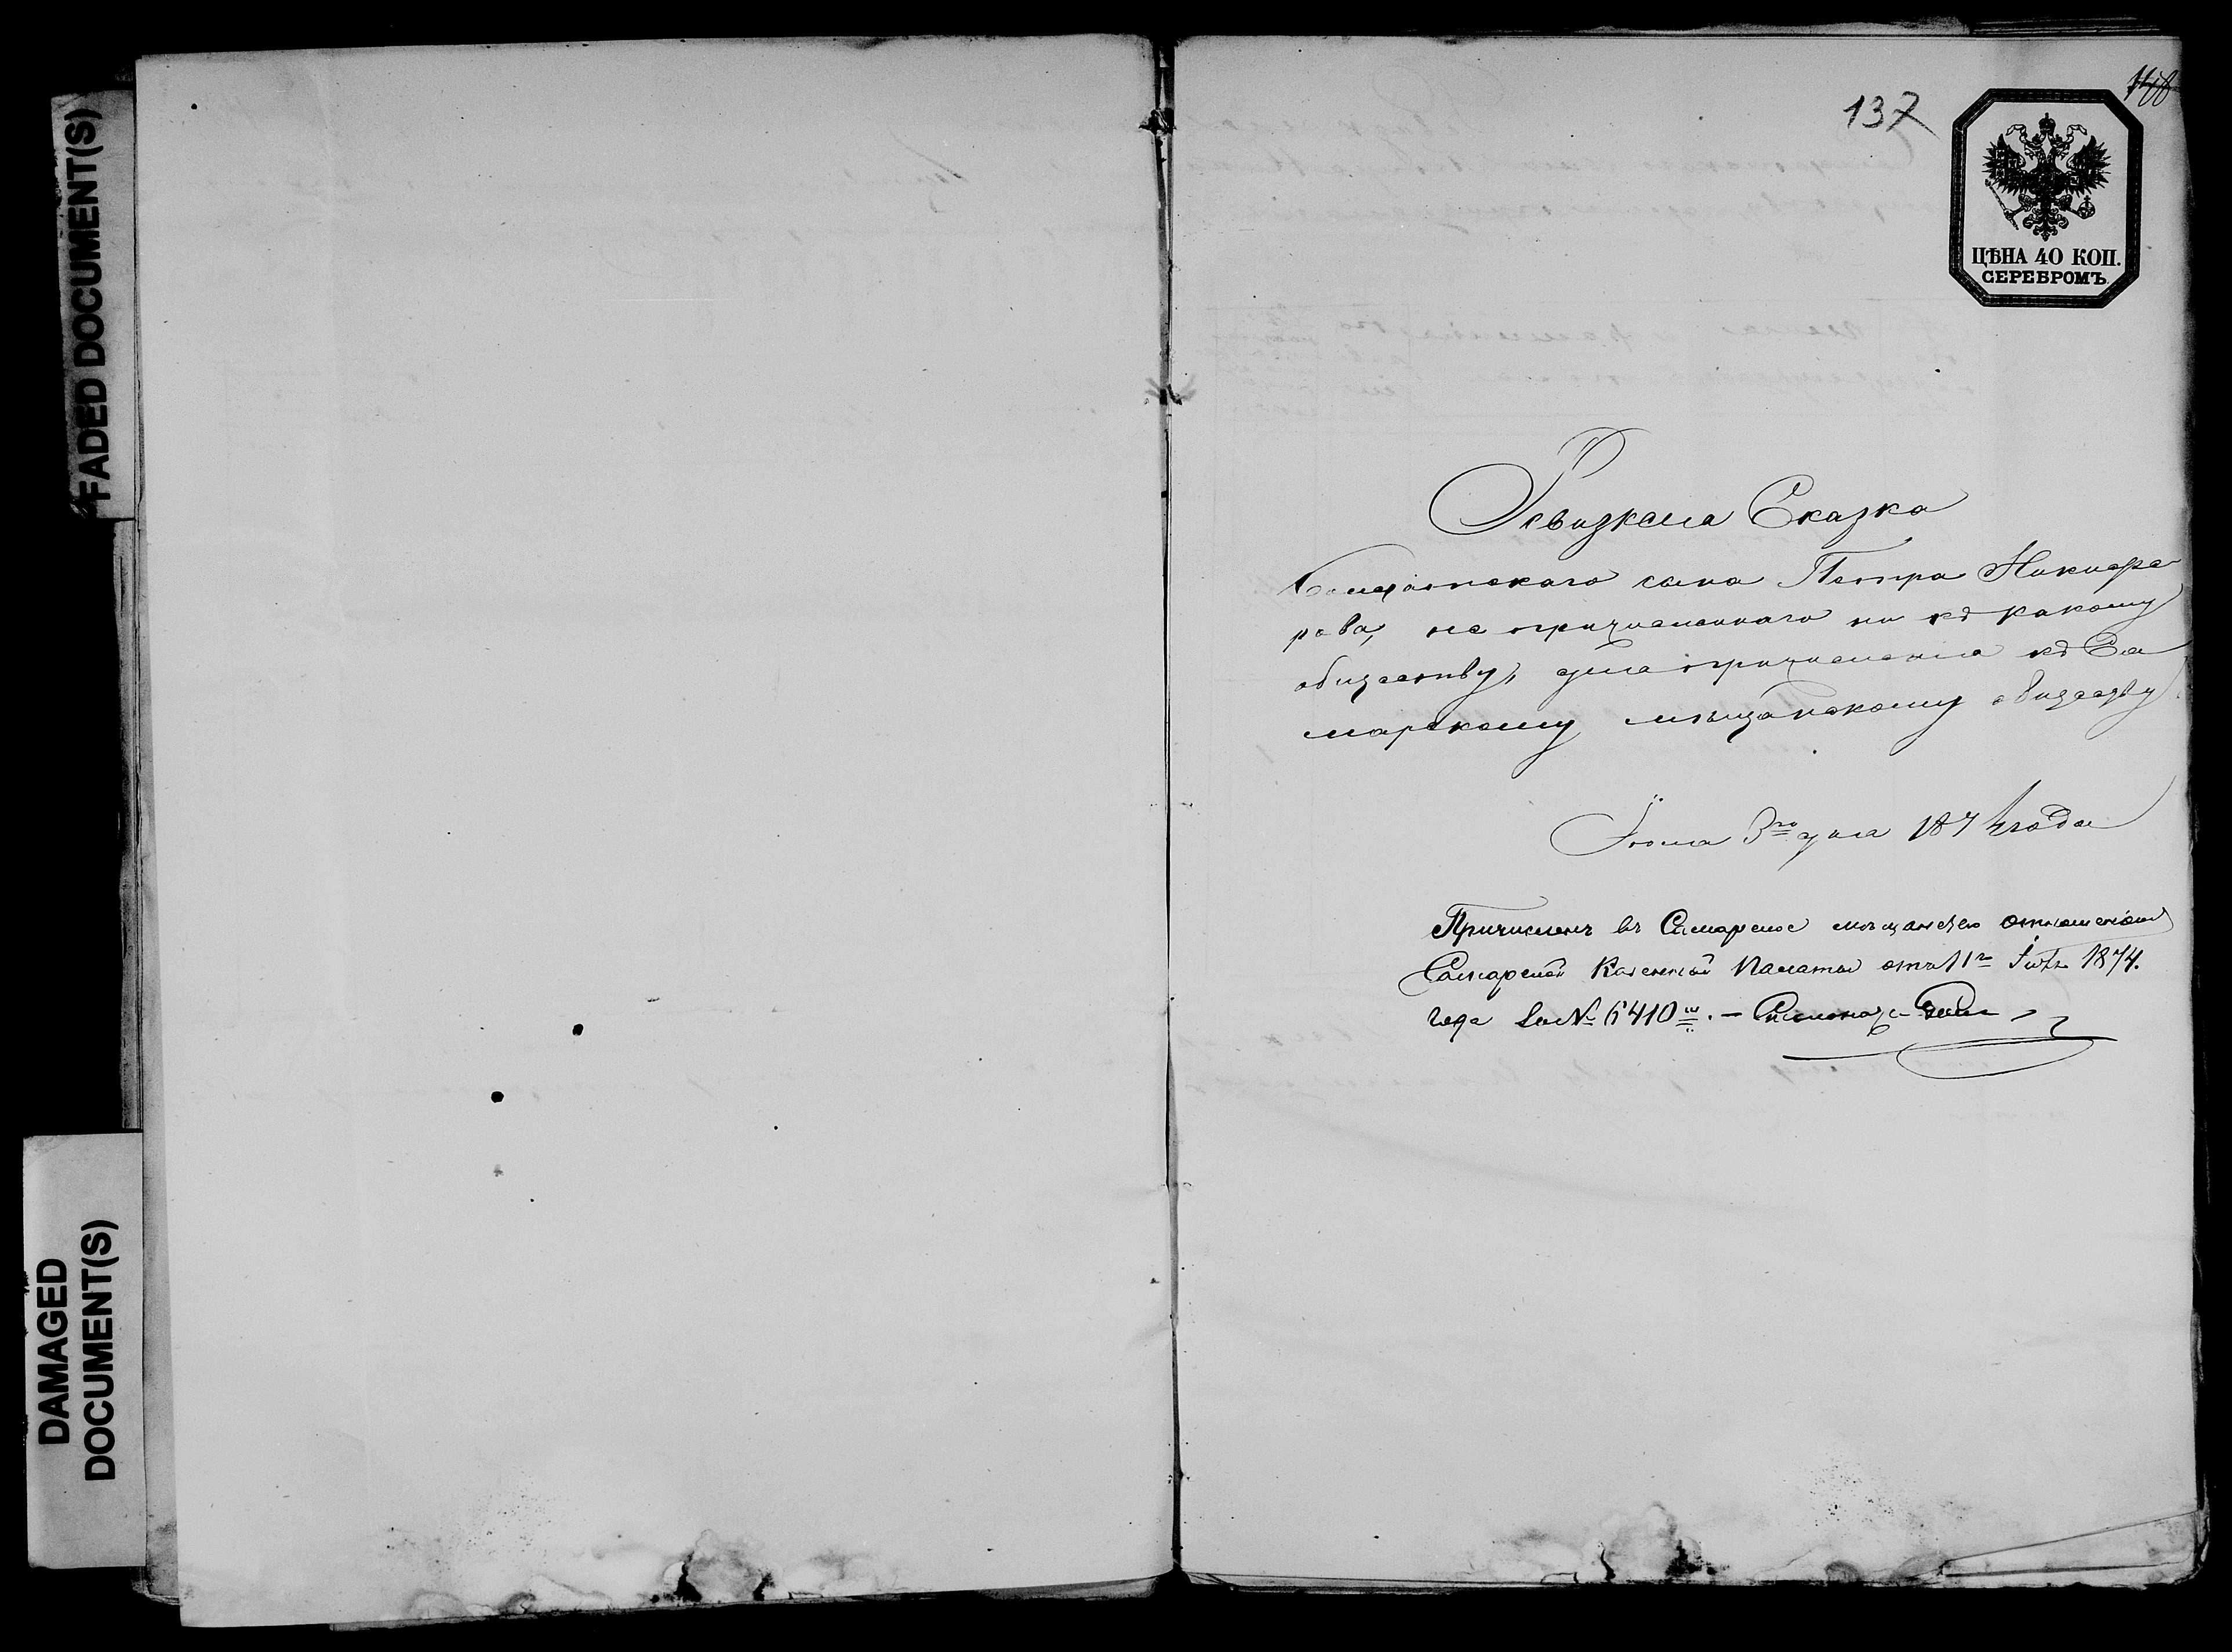 FADED DOCUMENT(S)
DAMAGED
DOCUMENT(S)
137
ЦѢНА 40 КОП.
СЕРЕБРОМЪ
Ревизкая Сказка
сына Петра Никифо
рова, не причисленнаго ни къ какому
обществу, для причисленія къ Са
марскому мѣщанскому обществу
Іюля 3го дня 1874 года
Причисленъ въ Самарское мѣщанство отношеніемъ
Самарской Казенной Палаты отъ 11го 1874.
года за № 6410м. —